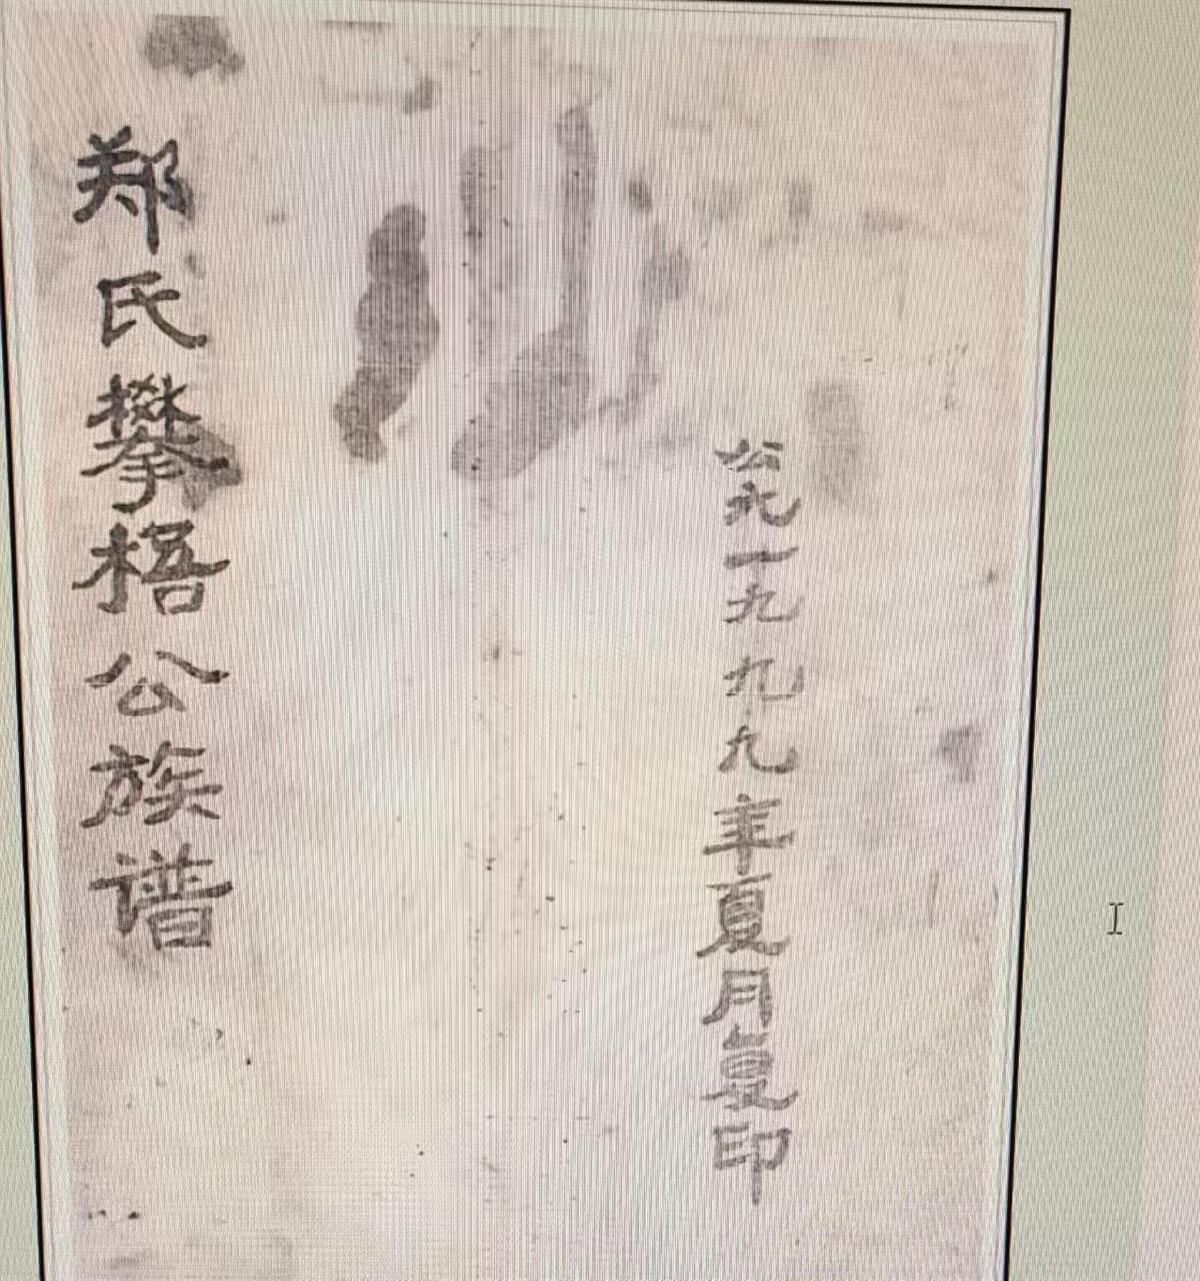 郑氏攀梧公族谱
公元一九九九年夏月复印